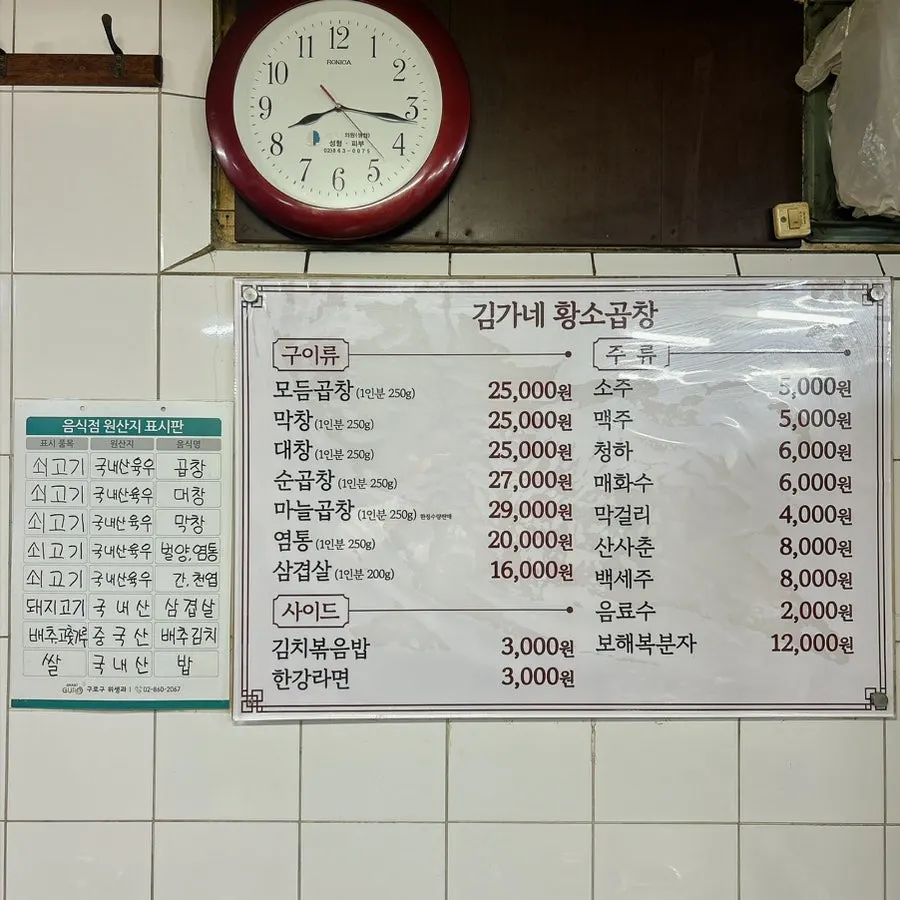 12
11 1
10 2
RONICA
9 3
의원(병원)
성형·피부
02)863-0075
8 4
7 5
6
김가네 황소곱창
구이류
모듬곱창 (1인분 250g) 25,000원
막창 (1인분 250g) 25,000원
대창 (1인분 250g) 25,000원
순곱창 (1인분 250g) 27,000원
마늘곱창 (1인분 250g) 한정수량판매 29,000원
염통 (1인분 250g) 20,000원
삼겹살 (1인분 200g) 16,000원
사이드
김치볶음밥 3,000원
한강라면 3,000원
주 류
소주 5,000원
맥주 5,000원
청하 6,000원
매화수 6,000원
막걸리 4,000원
산사춘 8,000원
백세주 8,000원
음료수 2,000원
보해복분자 12,000원
음식점 원산지 표시판
표시 품목 원산지 음식명
쇠고기 국내산육우 곱창
쇠고기 국내산육우 대창
쇠고기 국내산육우 막창
쇠고기 국내산육우 벌양,염통
쇠고기 국내산육우 간,천엽
돼지고기 국내산 삼겹살
배추고춧가루 중국산 배추김치
쌀 국내산 밥
구로구 위생과 | 02-860-2067